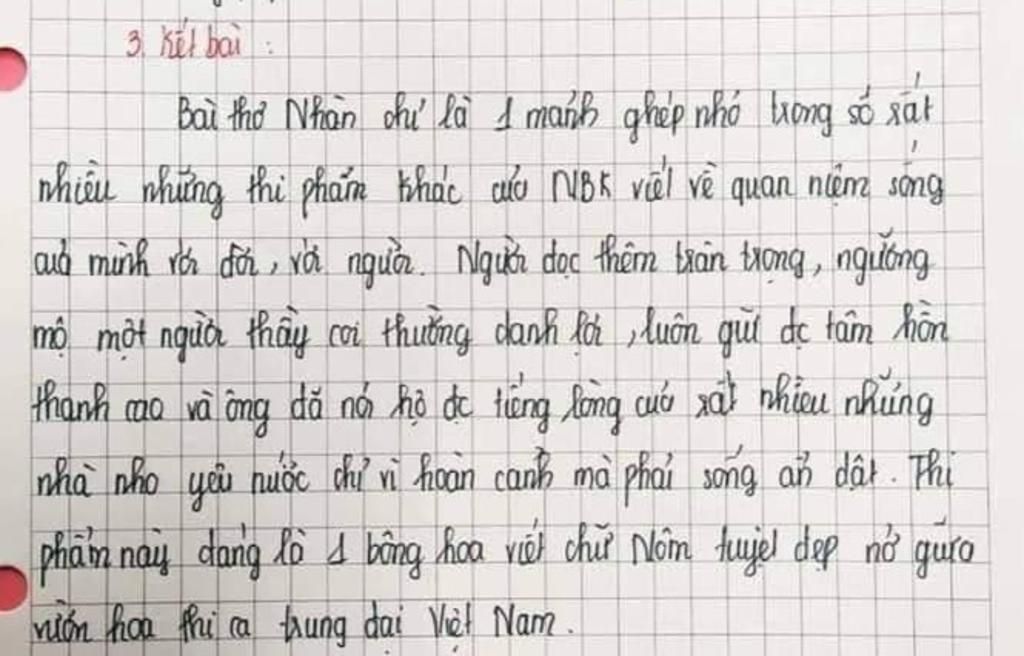 3. Kết bài :
Bài thơ Nhàn chỉ là 1 mảnh ghép nhỏ trong số rất
nhiều những thi phẩm khác của NBK viết về quan niệm sống
của mình với đời, với người. Người đọc thêm trân trọng, ngưỡng
mộ một người thầy coi thường danh lợi, luôn giữ đc tâm hồn
thanh cao và ông đã nói hộ đc tiếng lòng của rất nhiều những
nhà nho yêu nước chỉ vì hoàn cảnh mà phải sống ẩn dật. Thi
phẩm này đang là 1 bông hoa viết chữ Nôm tuyệt đẹp nở giữa
vườn hoa thi ca trung đại Việt Nam.